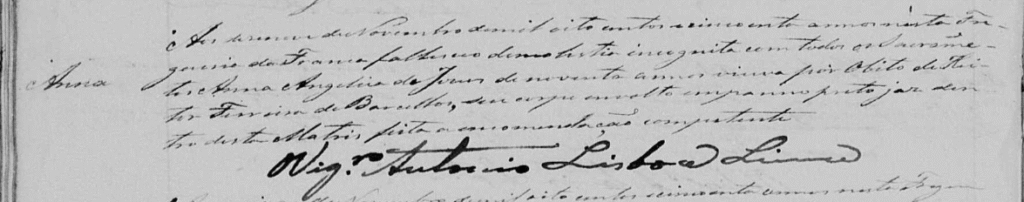 Aos dezenove de Novembro de mil oito centos e cincoenta annos nésta Fre-
guesia da Franca falleceo de molestia incognita com todos os Sacrame-
Anna
tos Anna Angelica de Jesus de noventa annos viuva por Obito de Hei-
tor Ferreira de Barcellos, seu corpo envolto em panno preto jaz den-
tro desta Matris feita a encomendação competente
O Vigr.º Antonio Lisboa Lima
de Novembro de mil oito centos e cincoenta annos nesta Fregue